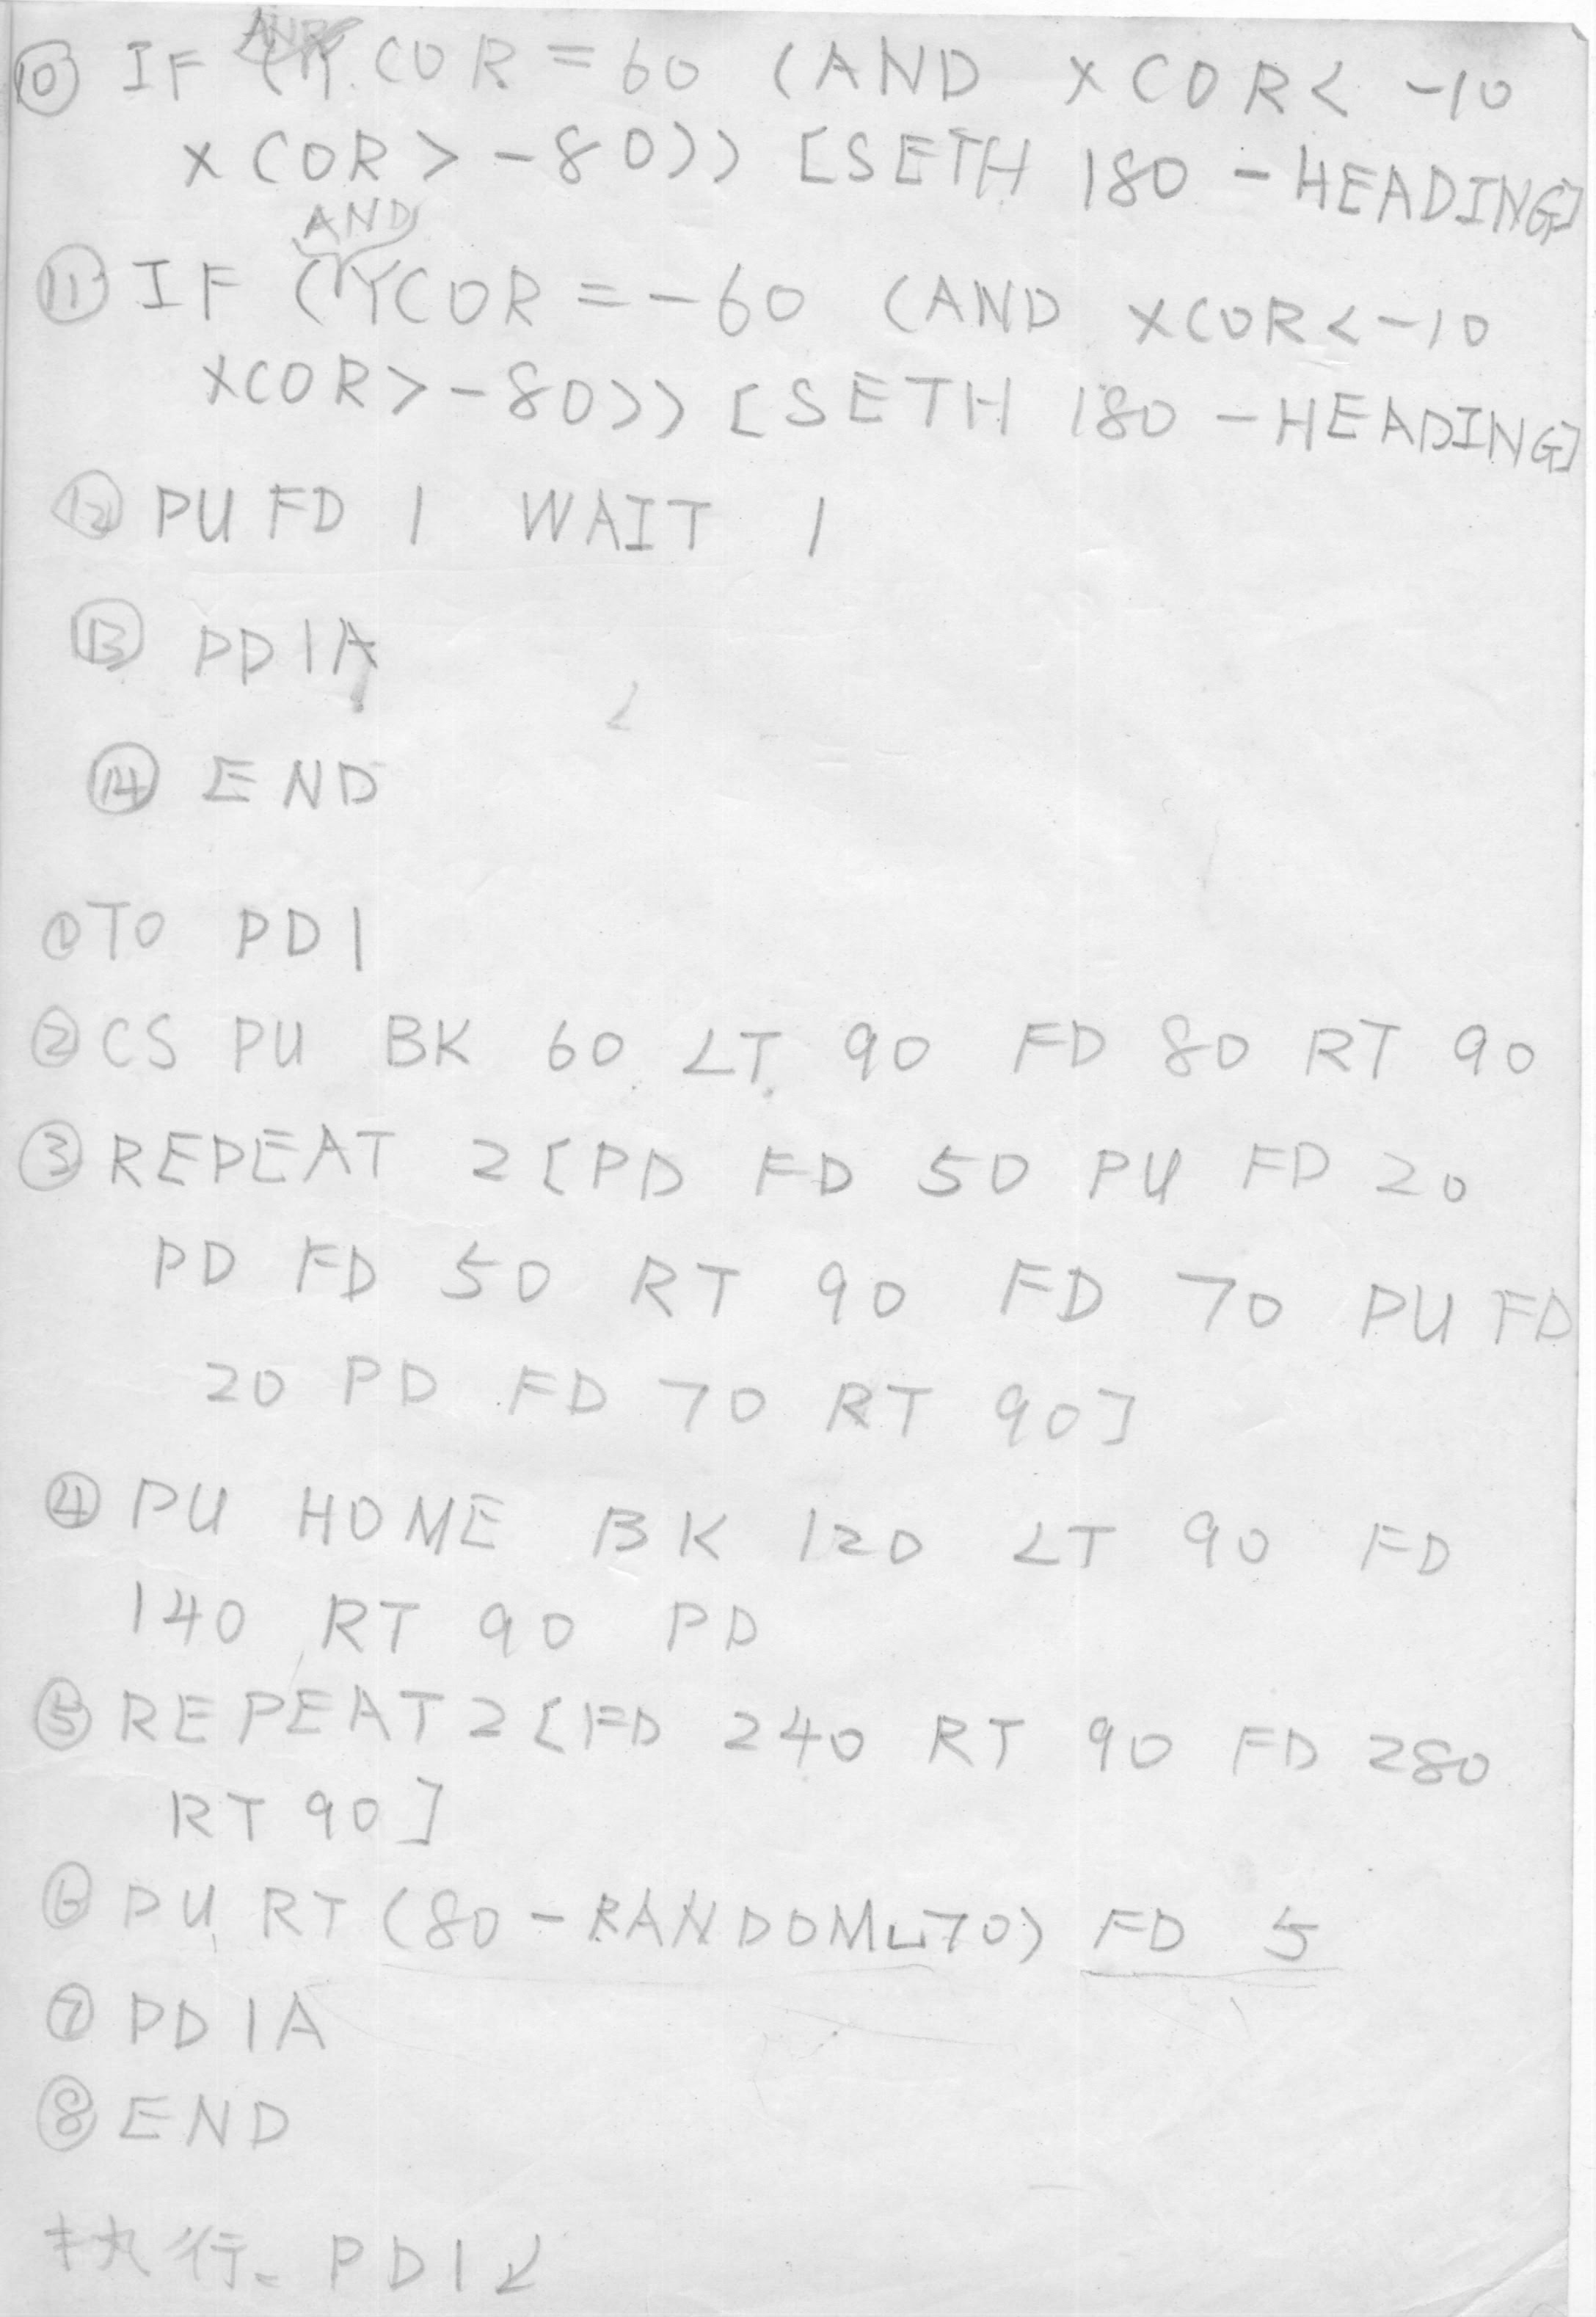 ⑩ IF (AND YCOR = 60 (AND XCOR < -10
XCOR > -80)) [SETH 180 - HEADING]
⑪ IF (AND YCOR = -60 (AND XCOR < -10
XCOR > -80)) [SETH 180 - HEADING]
⑫ PU FD 1 WAIT 1
⑬ PD1A
⑭ END
① TO PD1
② CS PU BK 60 LT 90 FD 80 RT 90
③ REPEAT 2 [PD FD 50 PU FD 20
PD FD 50 RT 90 FD 70 PU FD
20 PD FD 70 RT 90]
④ PU HOME BK 120 LT 90 FD
140 RT 90 PD
⑤ REPEAT 2 [FD 240 RT 90 FD 280
RT 90]
⑥ PU RT (80 - RANDOM␣70) FD 5
⑦ PD1A
⑧ END
执行. PD1↙